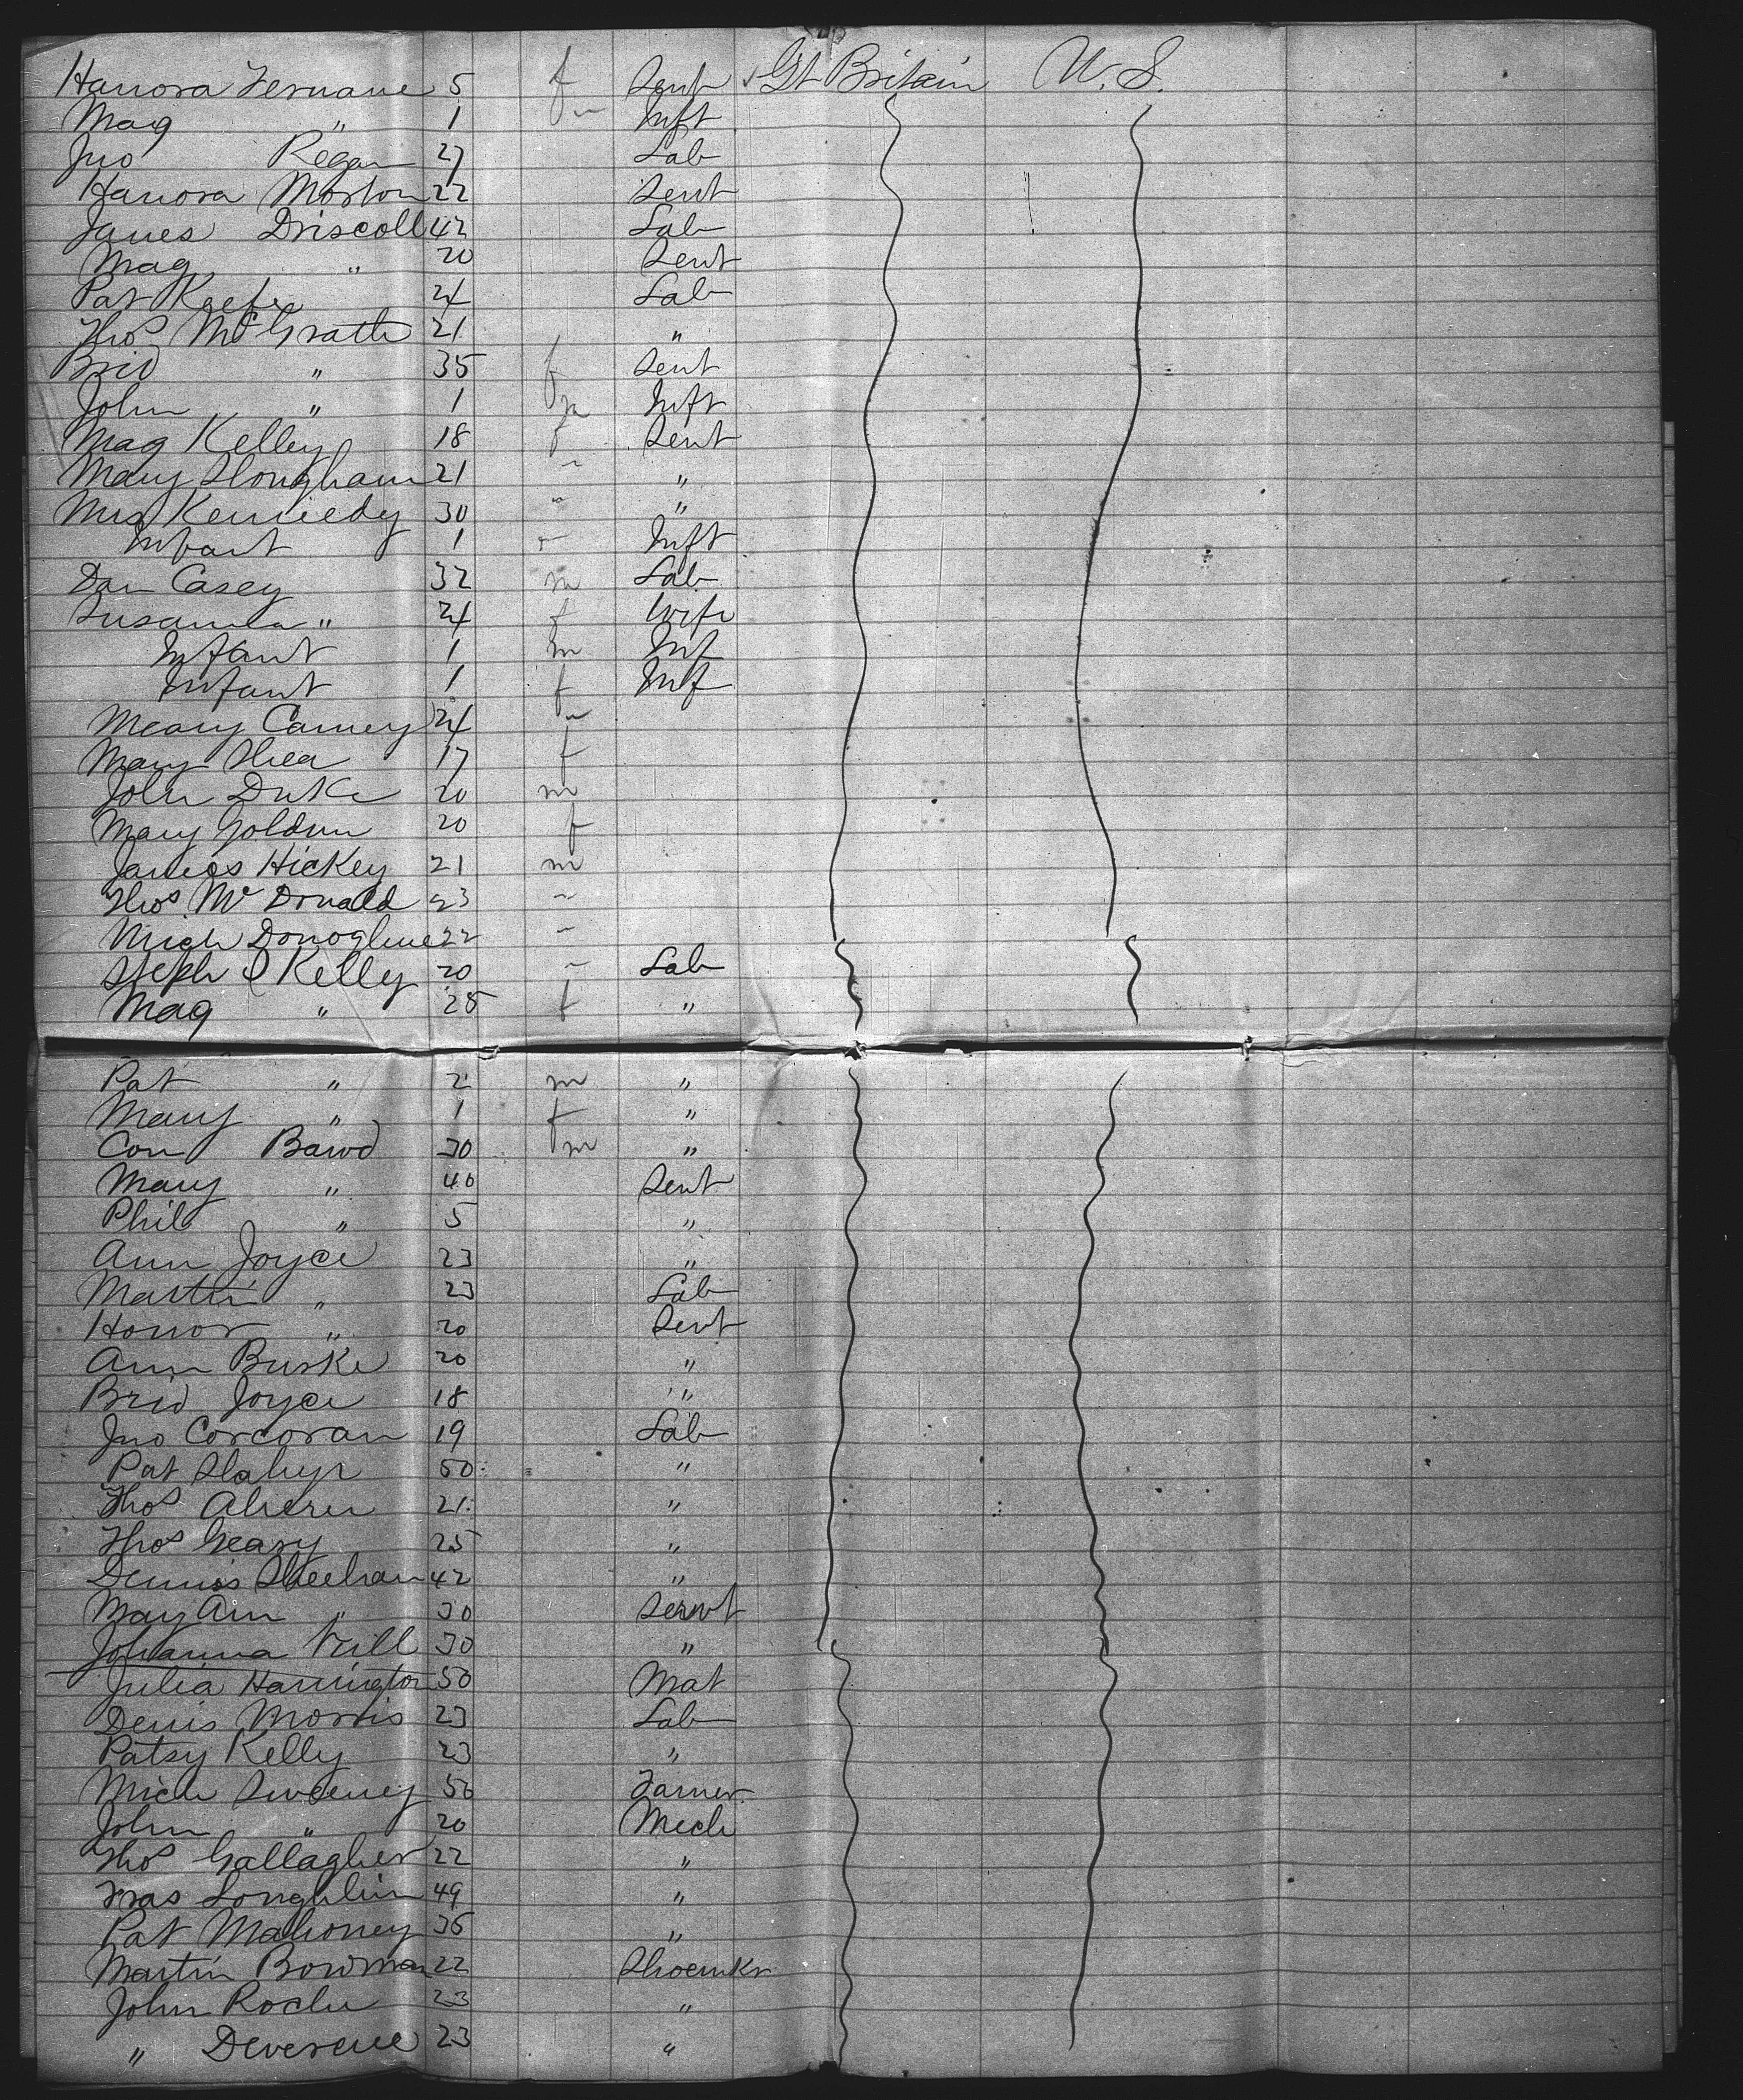 Hanora Fernane 5 f Sent ✓ Gt Britain U. S.
Mag " 1 " Inft
Jno Regan 27 Lab
Hanora Morton 22 Sent
James Driscoll 42 Lab
Mag " 20 Sent
Pat Keefe 24 Lab
Thos McGrath 21 "
Brid " 35 f Sent
John " 1 m Inft
Mag Kelley 18 f Sent
Mary 21 " "
Mrs Kennedy 30 " "
Infant 1 " Inft
Dan Casey 32 m Lab
Susanna " 24 f Wife
Infant 1 m Inf
Infant 1 f Inf
Meary Carney 24 "
Mary Shea 17 f
John Duke 20 m
Mary Goldun 20 f
James Hickey 21 m
Thos McDonald 23 "
Mich Donoghue 22 "
Steph Kelly 20 " Lab
Mag " 25 f "
Pat " 2 m "
Mary " 1 f "
Con Bawd 30 m "
Mary " 40 Sent
Phil " 5 "
Ann Joyce 23 "
Martin " 23 Lab
Honor " 20 Sent
Ann Burke 20 "
Brid Joyce 18 "
Jno Corcoran 19 Lab
Pat 50 "
Thos Ahern 21 "
Thos Geary 25 "
Dennis Sheehan 42 "
May Ann " 30 Servt
Johanna Neill 30 "
Julia Harrington 50 Mat
Denis Morris 23 Lab
Patsy Kelly 23 "
Mich Sweeney 50 Farmer
John " 20 Mech
Thos Gallagher 22 "
Fras Loughlin 49 "
Pat Mahoney 36 "
Martin Bowman 22 Shoemkr
John Roche 23 "
" Devereue 23 "